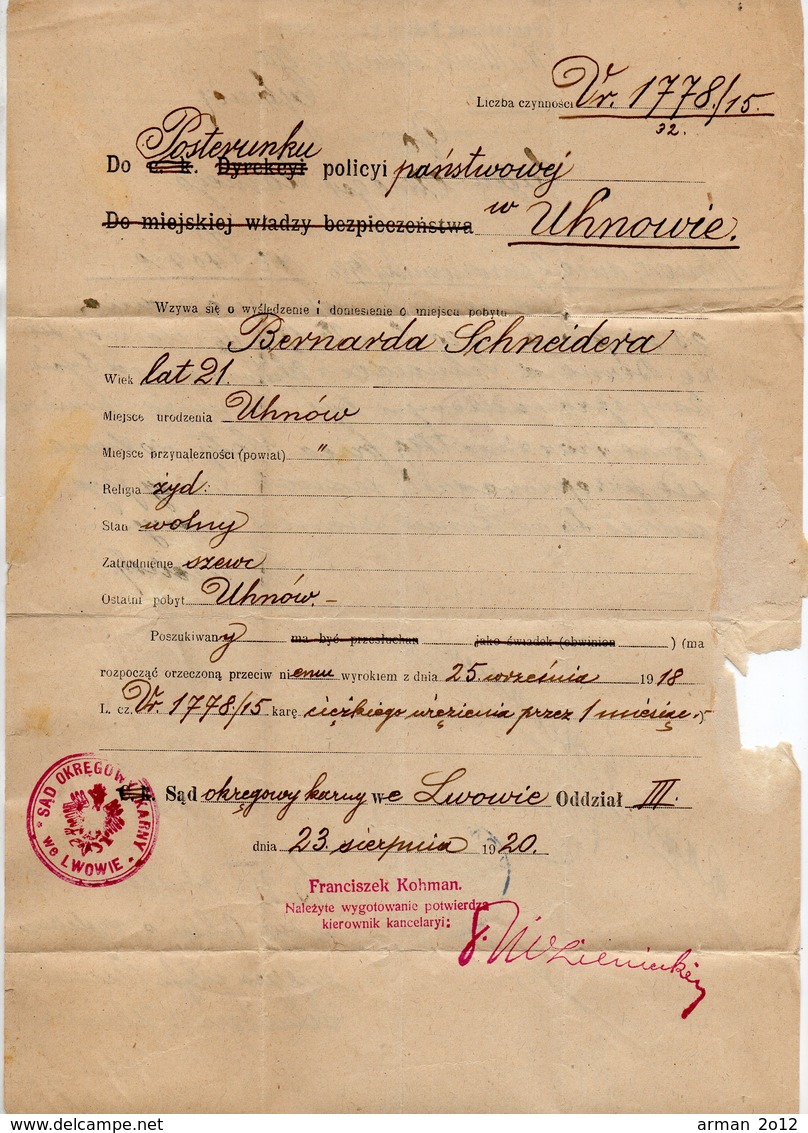 Liczba czynności Vr. 1778/15.
32.
Posterunku
Do c. k. Dyrekcyi policyi państwowej
Do miejskiej władzy bezpieczeństwa w Uhnowie.
Wzywa się o wyśledzenie i doniesienie o miejscu pobytu
Bernarda Schneidera
Wiek lat 21.
Miejsce urodzenia Uhnów
Miejsce przynależności (powiat) "
Religia żyd:
Stan wolny
Zatrudnienie szewc
Ostatni pobyt Uhnów.-
Poszukiwany ma być przesłuchan jako świadek (obwinion ) (ma
rozpocząć orzeczoną przeciw niemu wyrokiem z dnia 25. września 1918
L. cz. Vr. 1778/15 karę ciężkiego więzienia przez 1 miesiąc
C. K. Sąd okręgowy karny we Lwowie Oddział III.
dnia 23. sierpnia 1920.
SĄD OKRĘGOWY KARNY
we LWOWIE
Franciszek Kohman.
Należyte wygotowanie potwierdza
kierownik kancelaryi:
arman 2012